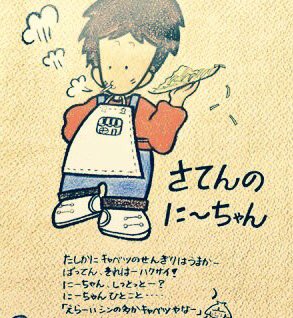 さてんの
に〜ちゃん
たしかに キャベツのせんぎりはうまかー
ばってん、きれはーハクサイ!
にーちゃん、しっとっとー?
にーちゃん ひとこと‥‥‥
「えらーいシンの多か キャベツやなー」